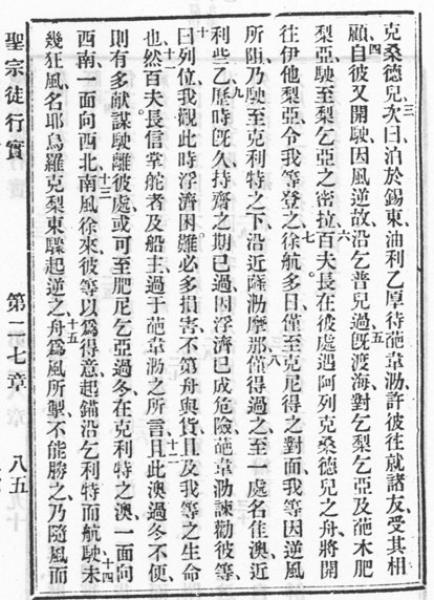 克桑德兒三次日泊於錫東油利乙厚待葩韋泐許彼往就諸友受其相
顧四自彼又開駛因風逆故沿乞普兒過五旣渡海對乞梨乞亞及葩木肥
梨亞駛至梨乞亞之密拉六百夫長在彼處遇阿列克桑德兒之舟將開
往伊他梨亞令我等登之七徐航多日僅至克尼得之對面我等因逆風
所阻乃駛至克利特之下沿近薩泐摩那八僅得過之至一處名佳澳近
利些乙九歷時旣久持齋之期已過因浮濟已成危險葩韋泐諫勸彼等
十曰列位我觀此時浮濟困難必多損害不第舟與貨且及我等之生命
也十一然百夫長信掌舵者及船主過于葩韋泐之所言十二且此澳過冬不便
則有多獻謀駛離彼處或可至肥尼乞亞過冬在克利特之澳一面向
西南一面向西北十三南風徐來彼等以爲得意起錨沿乞利特而航駛十四未
幾狂風名耶烏羅克梨東驟起逆之十五舟爲風所掣不能勝之乃隨風而
聖宗徒行實 第二七章 八五